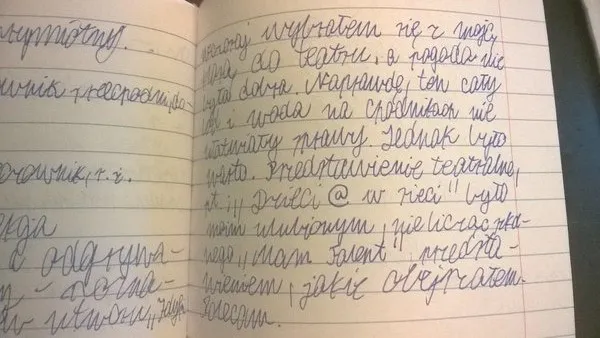 wymiotny.
ownik przechodni, do
orownik, r. ż.
kcja
i odgrywa-
n - rozna-
w utworu „Idyl
wczoraj wybrałem się z moją
mamą do teatru, a pogoda nie
była dobra. Naprawdę, ten cały
i woda na chodnikach nie
ułatwiały sprawy. Jednak było
warto. Przedstawienie teatralne,
pt.: „Dzieci @ w sieci" było
moim ulubionym, nie licząc
nego „Mam Talent", przedsta-
wieniem, jakie obejrzałem.
Polecam.